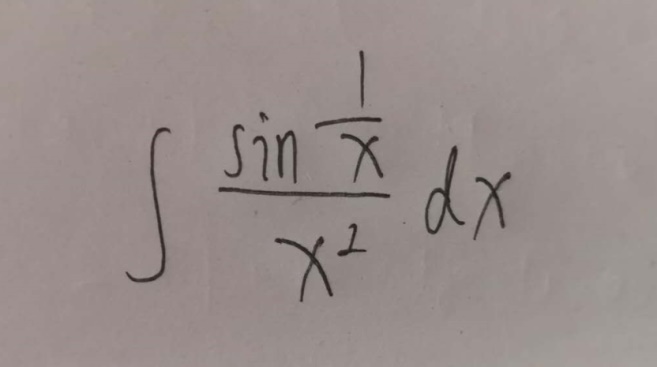 ∫ \frac{\sin \frac{1}{x}}{x^2} dx